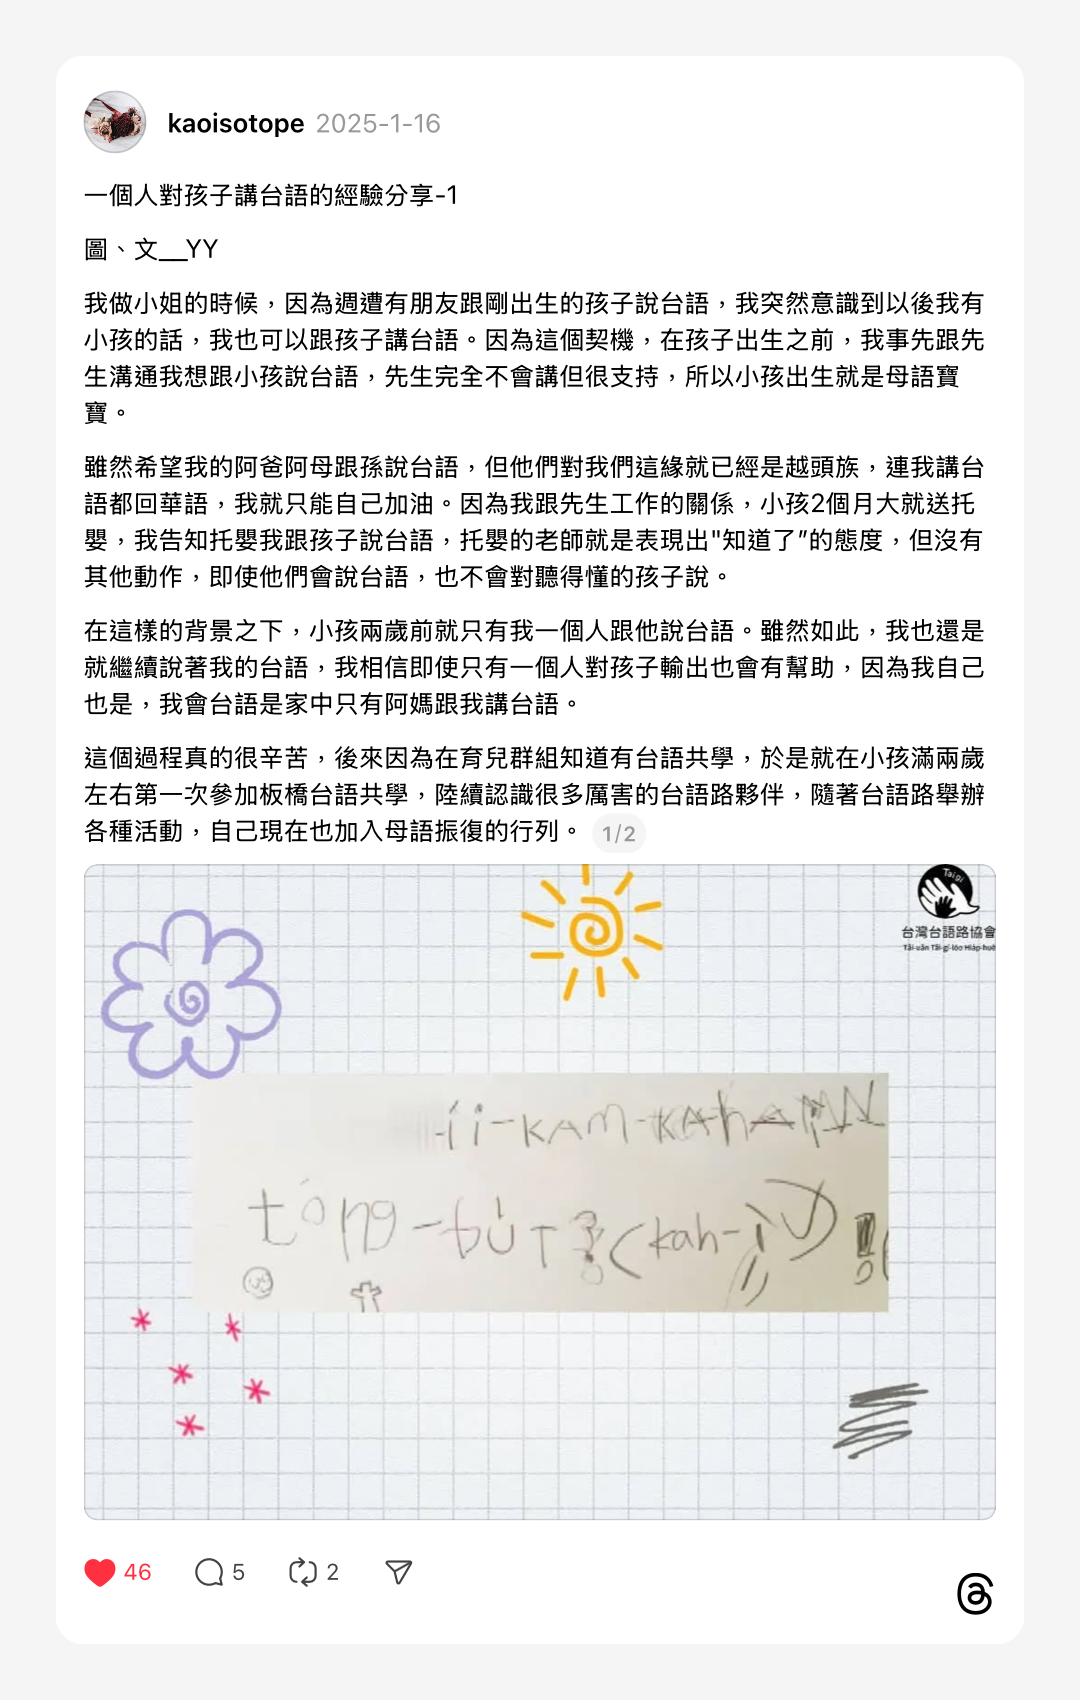 kaoisotope 2025-1-16
一個人對孩子講台語的經驗分享-1
圖、文__YY
我做小姐的時候，因為週遭有朋友跟剛出生的孩子說台語，我突然意識到以後我有
小孩的話，我也可以跟孩子講台語。因為這個契機，在孩子出生之前，我事先跟先
生溝通我想跟小孩說台語，先生完全不會講但很支持，所以小孩出生就是母語寶
寶。
雖然希望我的阿爸阿母跟孫說台語，但他們對我們這緣就已經是越頭族，連我講台
語都回華語，我就只能自己加油。因為我跟先生工作的關係，小孩2個月大就送托
嬰，我告知托嬰我跟孩子說台語，托嬰的老師就是表現出"知道了”的態度，但沒有
其他動作，即使他們會說台語，也不會對聽得懂的孩子說。
在這樣的背景之下，小孩兩歲前就只有我一個人跟他說台語。雖然如此，我也還是
就繼續說著我的台語，我相信即使只有一個人對孩子輸出也會有幫助，因為我自己
也是，我會台語是家中只有阿媽跟我講台語。
這個過程真的很辛苦，後來因為在育兒群組知道有台語共學，於是就在小孩滿兩歲
左右第一次參加板橋台語共學，陸續認識很多厲害的台語路夥伴，隨著台語路舉辦
各種活動，自己現在也加入母語振復的行列。 1/2
Taigi
台灣台語路協會
Tâi-uân Tâi-gí-lōo Hia̍p-huē
46 5 2